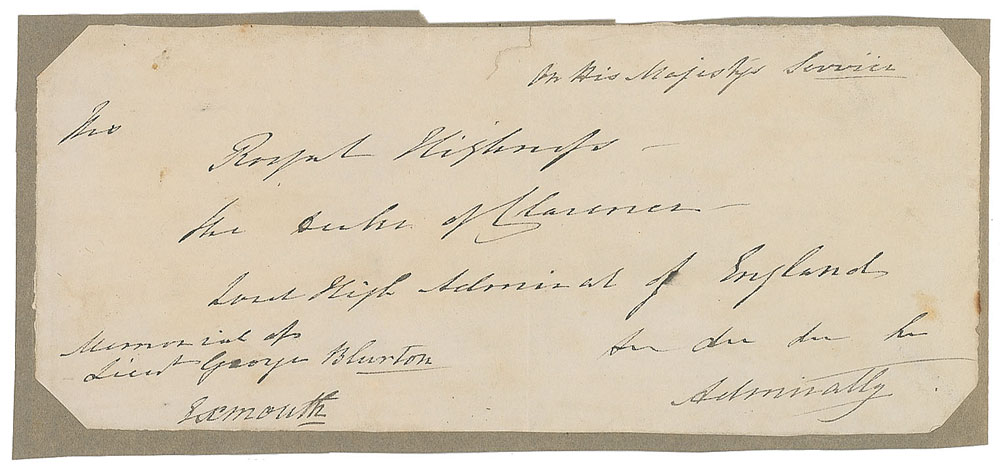 On His Majestys Service
His
Royal Highness
the Duke of Clarence
Lord High Admiral of England
Memorial of
Lieut George Blurton
Exmouth
Admiralty